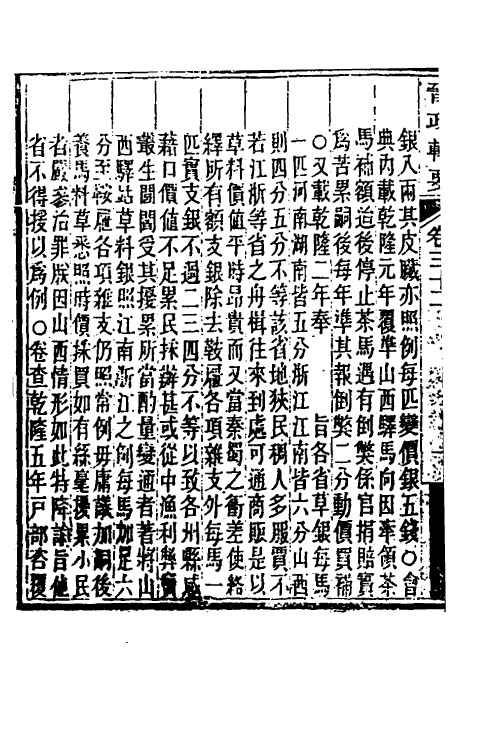 晉政輯要 卷三十二
銀入兩其皮臟亦照例每匹變價銀五錢○會
典內載乾隆元年覆準山西驛馬向因牽領茶
馬補額迨後停止茶馬遇有倒斃係官捐賠實
爲苦累嗣後每年準其報倒斃二分動價買補
○又載乾隆二年奉 旨各省草銀每馬
一匹河南湖南皆五分浙江江南皆六分山西
則四分五分不等該省地狹民稠人多服賈不
若江浙等省之舟楫往來到處可通商販是以
草料價值平時昂貴而又當秦蜀之衝差使絡
繹所有額支銀除去鞍屜各項雜支外每馬一
匹實支銀不過二三四分不等以致各州縣咸
藉口價值不足累民採辦甚或從中漁利弊竇
叢生閭閻受其擾累所當酌量變通者著將山
西驛站草料銀照江南浙江之例每馬加足六
分至鞍屜各項雜支仍照常例毋庸議加嗣後
養馬料草悉照時價採買如有絲毫擾累小民
者嚴參治罪朕因山西情形如此特降諭旨他
省不得援以爲例○卷查乾隆五年戸部咨覆